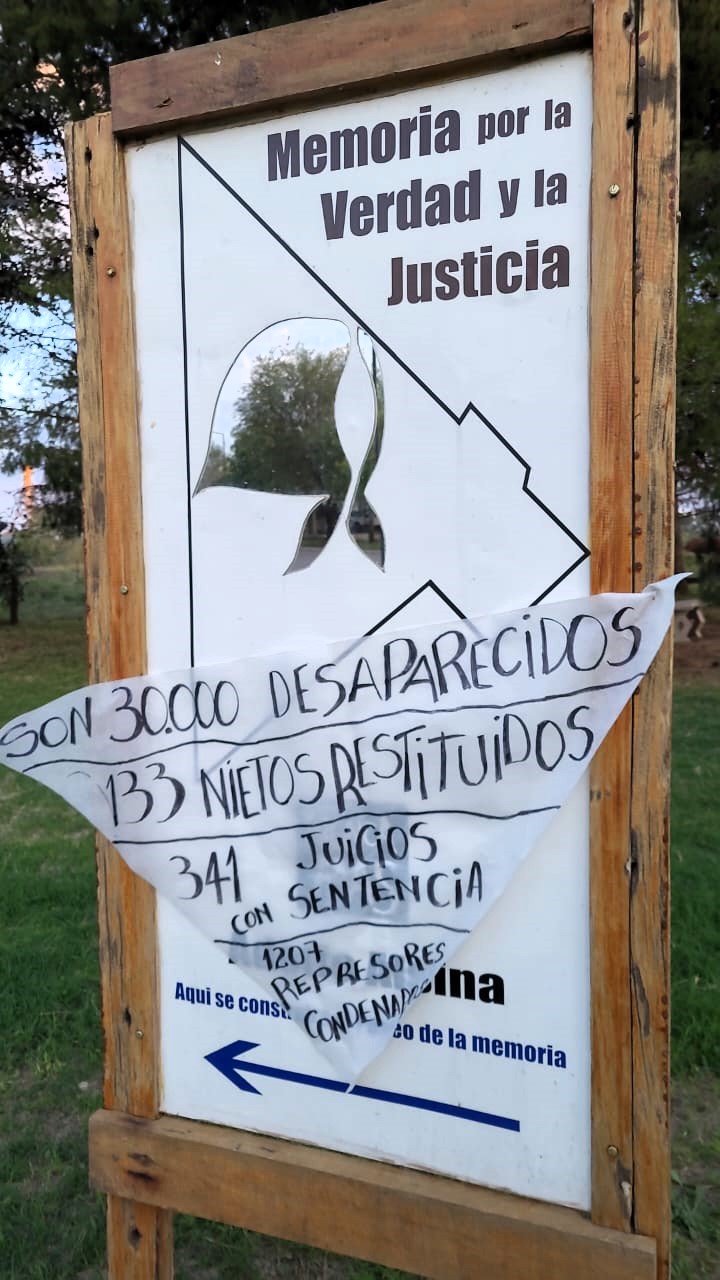 Memoria por la
Verdad y la
Justicia
SON 30.000 DESAPARECIDOS
133 NIETOS RESTITUIDOS
341 JUICIOS
CON SENTENCIA
1207
REPRESORES
CONDENADOS
Aqui se de la memoria